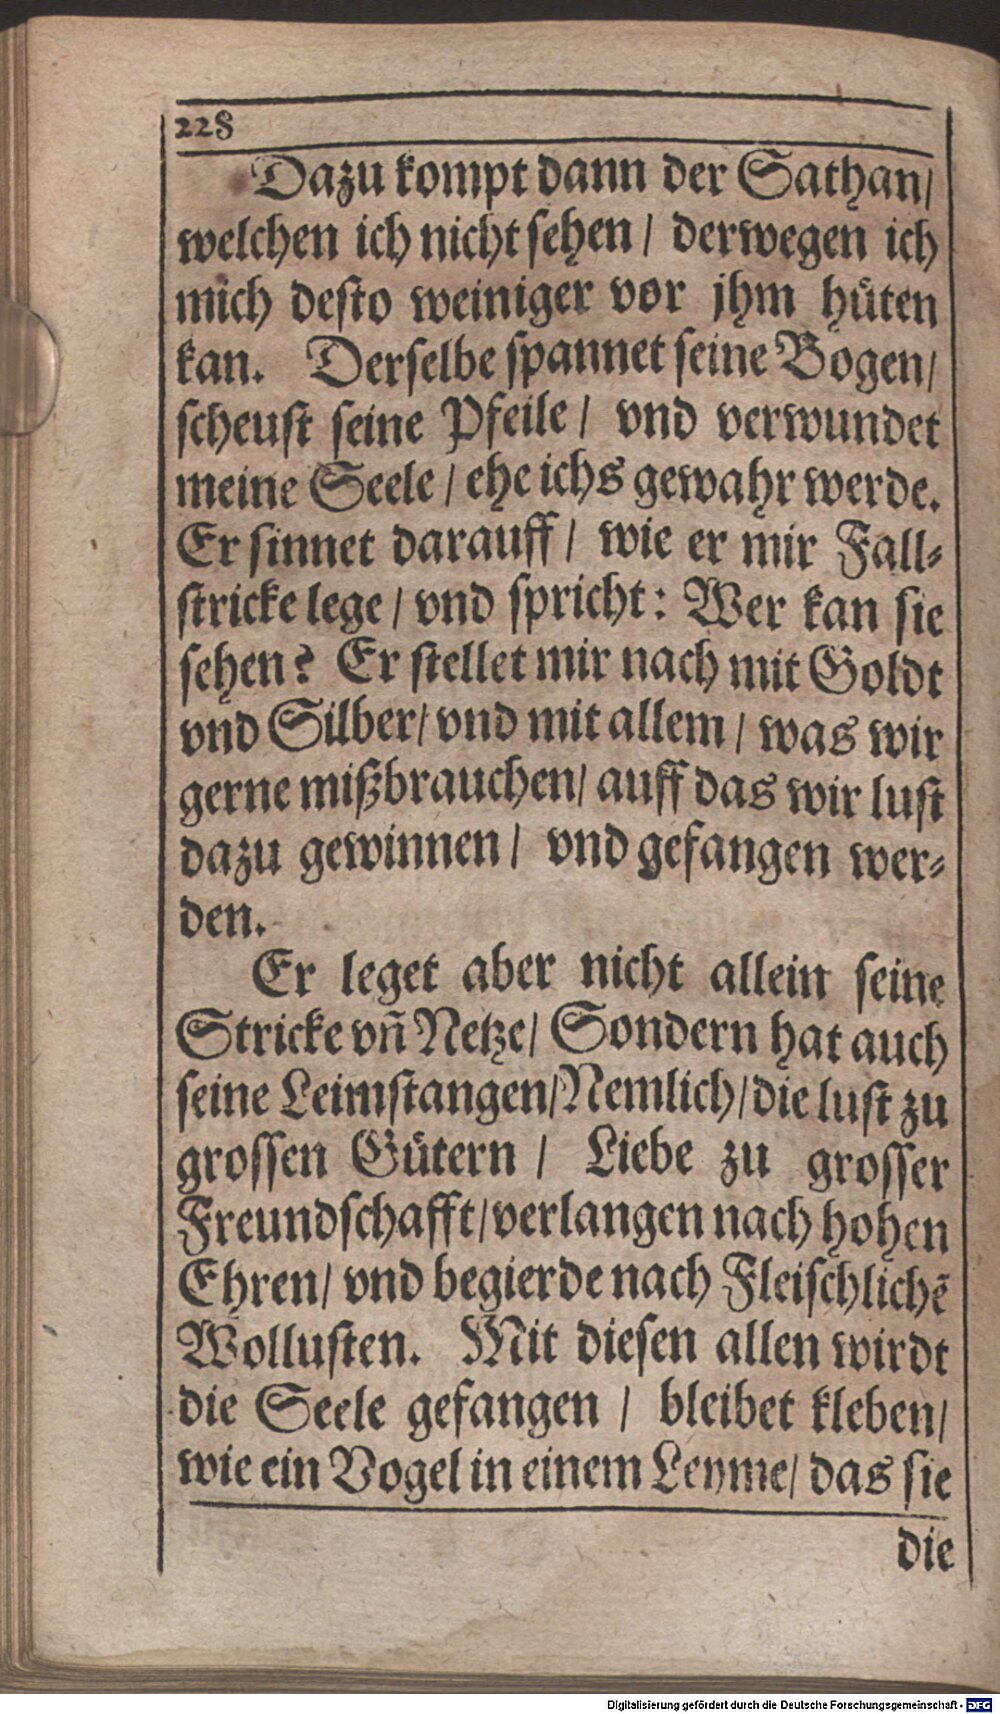 228
Dazu kompt dann der Sathan/
welchen ich nicht sehen / derwegen ich
mich desto weiniger vor jhm hüten
kan. Derselbe spannet seine Bogen/
scheust seine Pfeile / vnd verwundet
meine Seele / ehe ichs gewahr werde.
Er sinnet darauff / wie er mir Fall-
stricke lege / vnd spricht: Wer kan sie
sehen? Er stellet mir nach mit Goldt
vnd Silber/ vnd mit allem / was wir
gerne mißbrauchen/ auff das wir lust
dazu gewinnen / vnd gefangen wer-
den.
Er leget aber nicht allein seine
Stricke vñ Netze/ Sondern hat auch
seine Leimstangen/Nemlich/die lust zu
grossen Gütern / Liebe zu grosser
Freundschafft/verlangen nach hohen
Ehren/ vnd begierde nach Fleischlichẽ
Wollusten. Mit diesen allen wirdt
die Seele gefangen / bleibet kleben/
wie ein Vogel in einem Leyme/ das sie
die
Digitalisierung gefördert durch die Deutsche Forschungsgemeinschaft - DFG